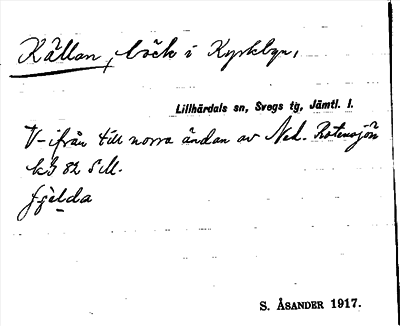 Källan, bäck i Kyrkbyn,
Lillhärdals sn, Svegs tg, Jämtl. l.
V-ifrån till norra ändan av Ned. Rotensjön
kG 82 SM.
fjelda
S. ÅSANDER 1917.